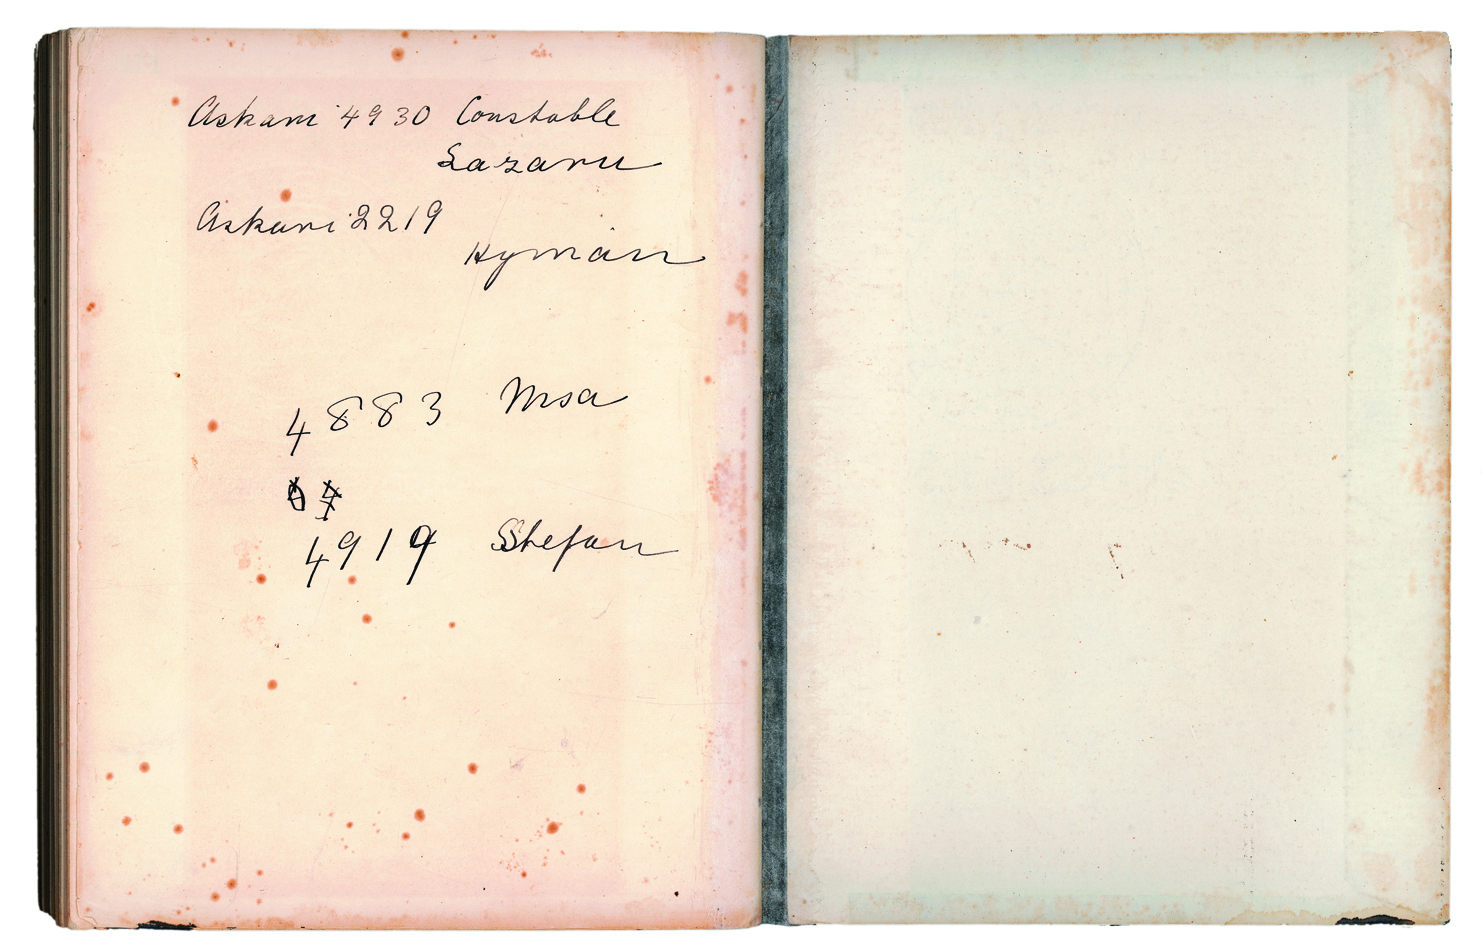 Askari 4930 Constable
Lazaru
Askari 2219
Hyman
4883 Msa
4919 Stefan